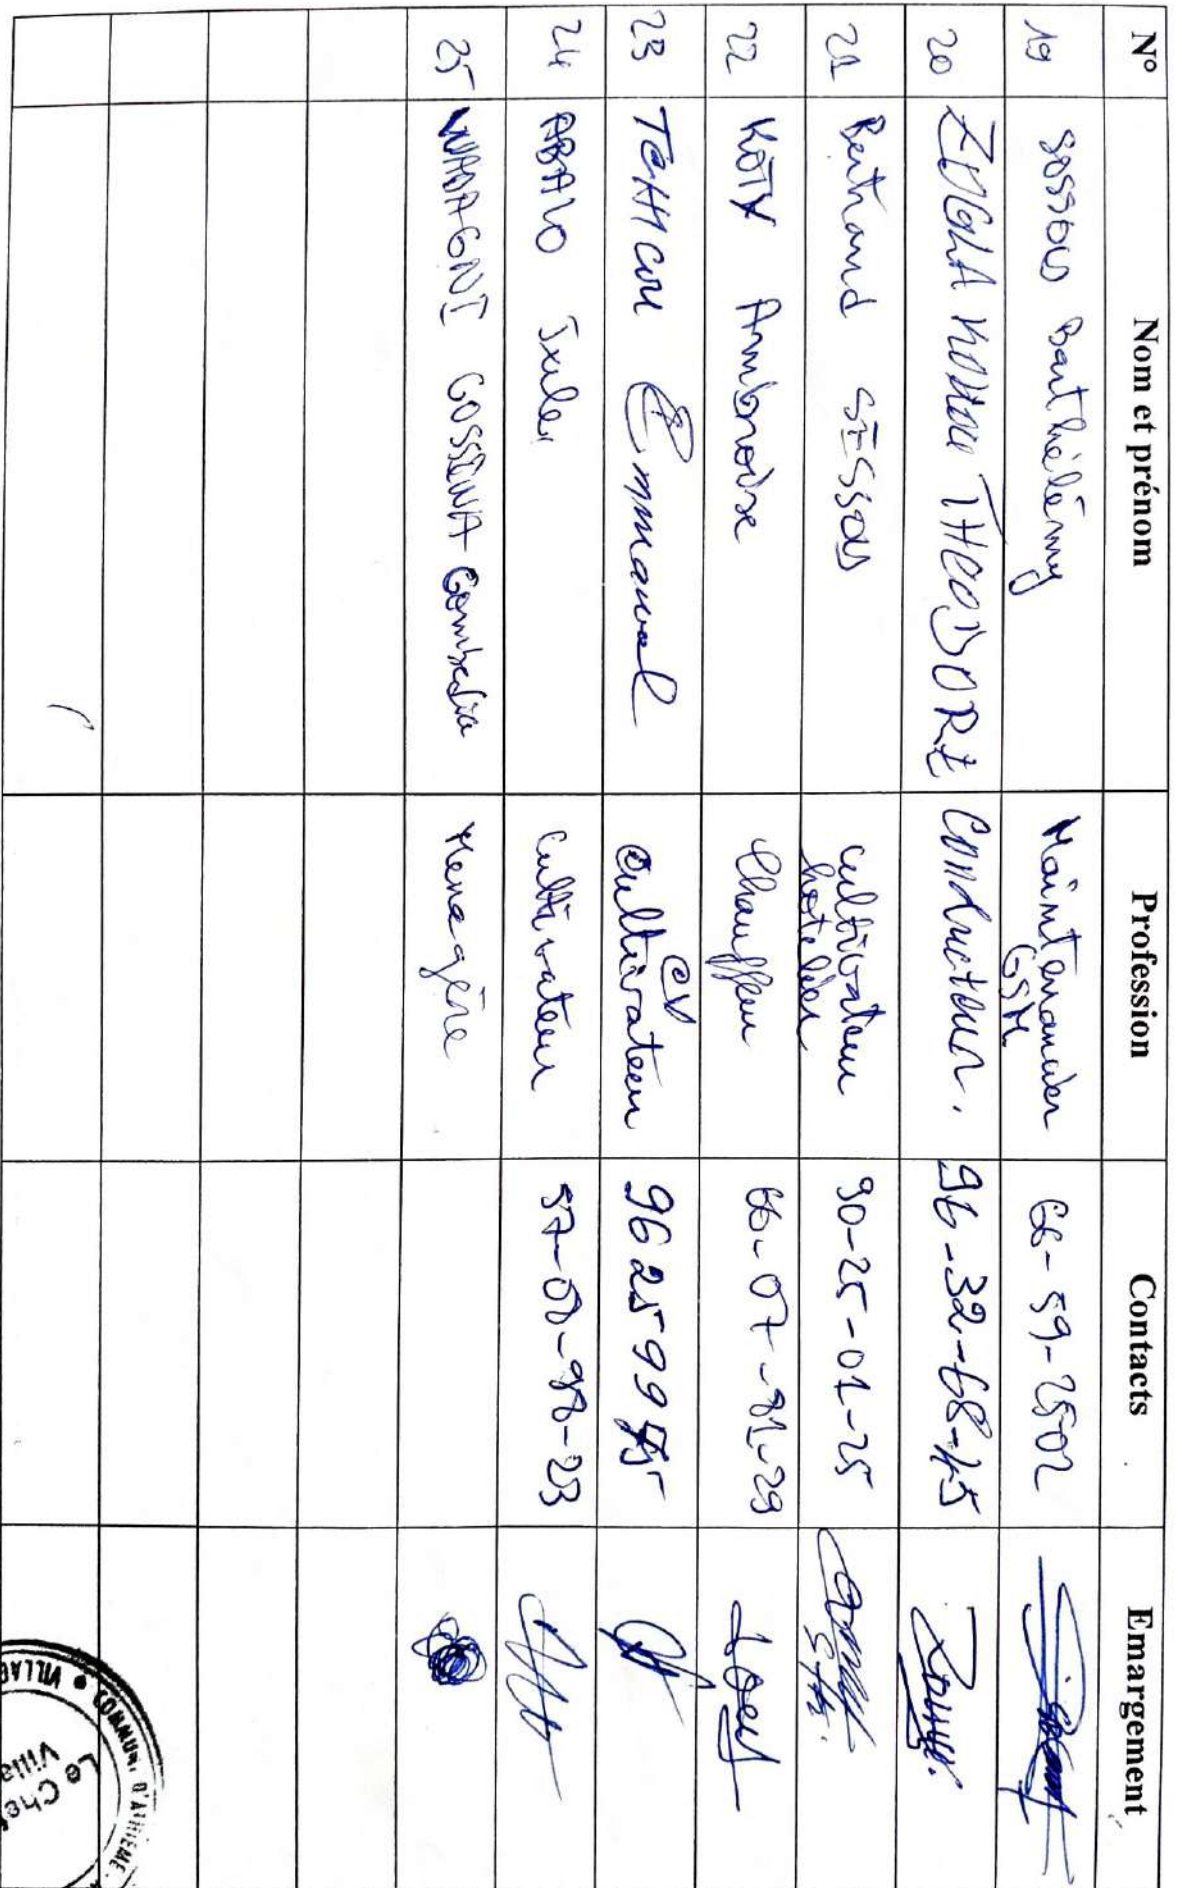 N° Nom et prénom Profession Contacts Emargement
19 SOSSOU Barthélémy Maintenancier GSM 66-59-2502
20 THEODORE Conducteur. 96-32-68-45
21 Bertrand SESSOU cultivateur hotelier 90-25-01-25
22 KOTY Ambroise Chauffeur 66-07-81-29
23 Emmanuel CV cultivateur 96259975
24 ABALO Jules Cultivateur
25 WADAGNI GOSSINA Menagère
COMMUNE D'ATHIEME
VILLAGE
Le Chef
Villa